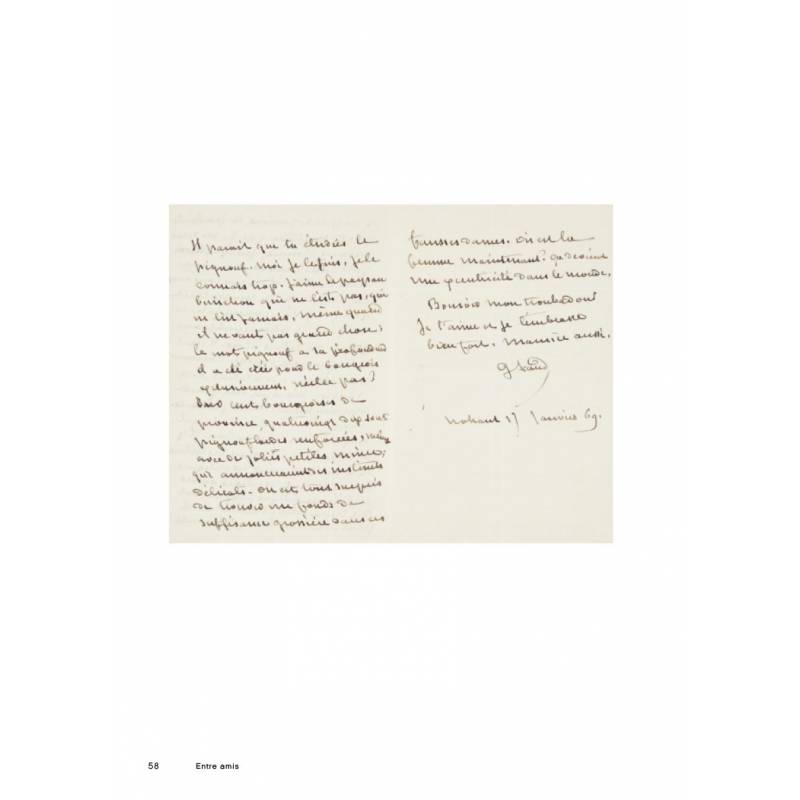 Il parait que tu étudies le
pignouf. Moi je le fuis, je le
connais trop. J'aime le paysan
berrichon qui ne l'est pas, qui
ne l'est jamais, même quand
il ne vaut pas grand chose;
le mot pignouf a sa profondeur
il a été créé pour le bourgeois
exclusivement, n'est ce pas?
Sur cent bourgeoises de
province, quatrevingt dix sont
pignouflardes renforcées, même
avec de jolies petites mines
qui annonceraient des instincts
délicats. On est tout surpris
de trouver un fonds de
suffisance grossière dans ces
fausses dames. Où est la
femme maintenant? ça devient
une excentricité dans le monde.
Bonsoir mon troubadour
Je t'aime et je t'embrasse
bien fort. Maurice aussi.
G Sand
Nohant 17 Janvier 69.
58 Entre amis